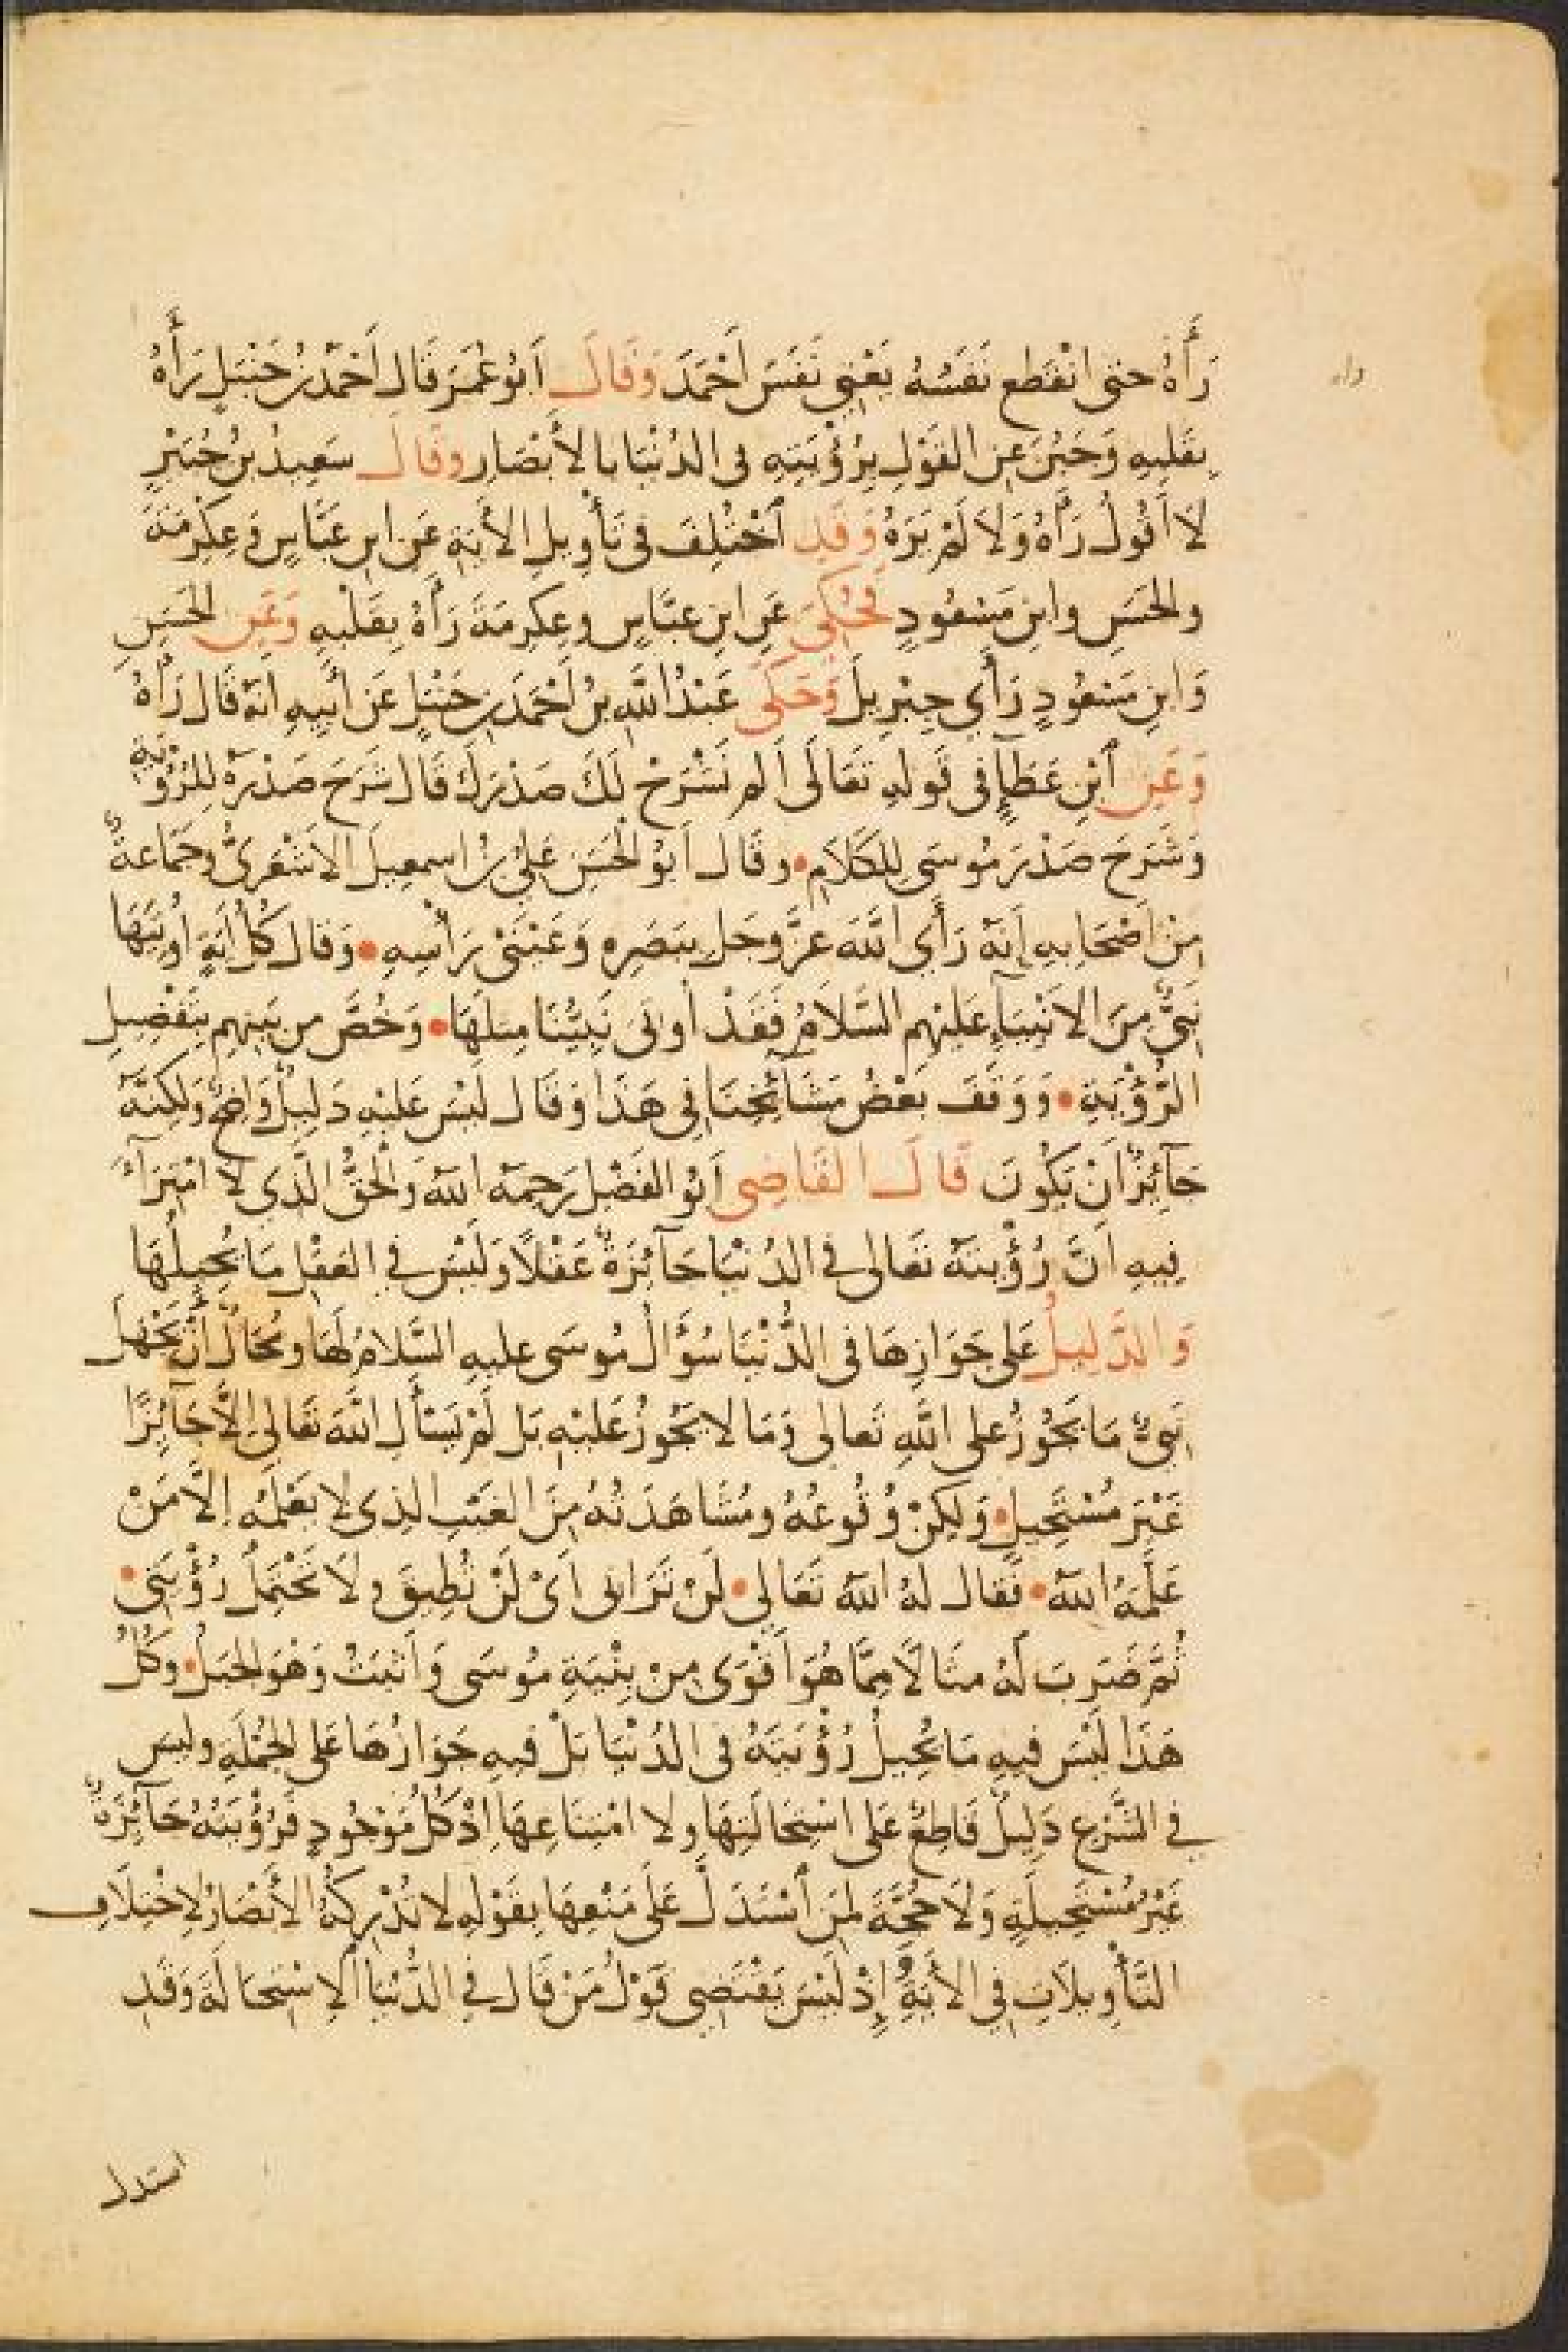 رَأٰهُ حتى انْقَطع نَفَسُهُ يَعْنِي نَفَسَ أَحْمَدَ وَقَالَ أَبُو عُمَرَ قَالَ أَحْمَدُ بْنُ حَنْبَلٍ رَأٰهُ
بِقَلبِهِ وَجَبُنَ عَنِ القَوْلِ بِرُؤْيَتِهِ فى الدُنْيَا بالأَبْصَارِ وقَالَ سَعِيدُ بنُ جُبَيْرٍ
لَا أَقُولُ رَأٰهُ وَلَا لَمْ يَرَهُ وَقَدِ اخْتُلِفَ فى تَأْوِيلِ الأَيَةِ عَنِ ابنِ عَبَّاسٍ وَعِكْرِمَةَ
والحَسَنِ وابنِ مَسْعُودٍ فَحُكِىَ عَنِ ابنِ عبَّاسٍ وعِكرِمَةَ رَأٰهُ بِقَلْبِهِ وَعَنِ الحَسَنِ
وَابنِ مَسْعُودٍ رَأٰى جِبْرِيلَ وَحَكَى عَبْدُ اللهِ بنُ أَحْمَدَ بنِ حَنْبَلٍ عَن أَبِيهِ أَنّهُ قَالَ رَأٰهُ
وَعَنِ ابْنِ عَطَآءٍ فى قَولِهِ تَعَالَى أَلم نَشْرَحْ لَكَ صَدْرَكَ قَالَ شَرَحَ صَدْرَهُ لِلرُّؤْيَةِ
وَشَرَحَ صَدْرَ مُوسَى لِلكَلَامِ • وقَالَ أَبُو الحَسَنِ عَلِىُّ بنُ اسمعِيلَ الاشْعَرِىُّ وجَمَاعَةٌ
مِنْ أَصْحَابِهِ أَنّهُ رَأٰى اللهَ عَزَّ وجَلَّ بِبَصَرِهِ وَعَيْنَىْ رَأْسِهِ • وَقَالَ كُلُّ أٰيَةٍ أُوتِيَهَا
نَبِىٌّ مِنَ الأَنْبِيَآءِ عَلَيْهِم السَّلَامُ فَقَدْ أُوتِىَ نَبِيُّنَا مِثلَهَا • وَخُصَّ مِن بَينِهِم بِتَفْضِيلِ
الرُّؤْيَةِ • وَوَقَفَ بَعْضُ مَشَآئِخِنَا فِى هَذَا وَقَالَ لَيْسَ عَلَيْهِ دَلِيلٌ وَاضِحٌ وَلكِنّهُ
جَآئِزٌ أَنْ يَكُونَ قَالَ القَاضِى أَبُو الفَضْلِ رَحِمَهُ اللهُ وَالْحَقُّ الَّذِى لَا امْتِرَآءَ
فِيهِ أَنَّ رُؤْيَتَهُ تَعَالى فى الدُنْيَا جَآئِزَةٌ عَقْلًا وَلَيْسَ فِى العَقْلِ مَا يُحِيلُهَا
وَالدَّلِيلُ عَلَى جَوَازِهَا فى الدُّنْيَا سُؤَالُ مُوسَى عليهِ السَّلَامُ لَهَا ومُحَالٌ أَنْ يَجْهَلَ
نَبِىٌّ مَا يَجُوزُ على اللهِ تَعالى وَمَا لا يَجُوزُ عَليْهِ بَل لَمْ يَسْأَلِ اللهَ تَعَالى إِلَّا جَآئِزًا
غَيْرَ مُسْتَحِيلٍ • وَلكِنْ وُقُوعُهُ ومُشَاهَدَتُهُ مِنَ الغَيْبِ الذِى لا يَعْلَمُهُ إِلَّا مَنْ
عَلَّمَهُ اللهُ • فَقَالَ لَهُ اللهُ تَعَالى • لَنْ تَرَانى أَىْ لَنْ تُطِيقَ ولَا تَحْتَمِلُ رُؤْيَتِى •
ثُمّ ضَرَبَ لَهُ مثَالًا مِمَّا هُوَ أَقْوَى مِنْ بِنْيَةِ مُوسَى وَأَثْبَتُ وَهُوَ الجَبَلُ • وَكُلُّ
هَذَا لَيْسَ فِيهِ مَا يُحِيلُ رُؤْيَتَهُ فى الدُنْيَا بَلْ فِيهِ جَوَازُهَا عَلى الجُمْلَةِ وليسَ
فِى الشَّرْعِ دَلِيلٌ قَاطِعٌ عَلى اسْتِحَالَتِهَا ولا امْتِنَاعِهَا إِذْ كُلُّ مَوْجُودٍ فَرُؤْيَتُهُ جَآئِزَةٌ
غَيْرُ مُسْتَحِيلَةٍ وَلَا حُجَّةَ لِمَنِ اسْتَدَلَّ عَلَى مَنْعِهَا بِقَوْلِهِ لا تُدْرِكُهُ الأَبْصَارُ لِاخْتِلَافِ
التَّأْوِيلَاتِ فِى الأَيَةِ إِذْ لَيْسَ يَقْتَضِى قَوْلُ مَنْ قَالَ فى الدُّنْيَا الِاسْتِحَالَةَ وَقَدِ
استدل